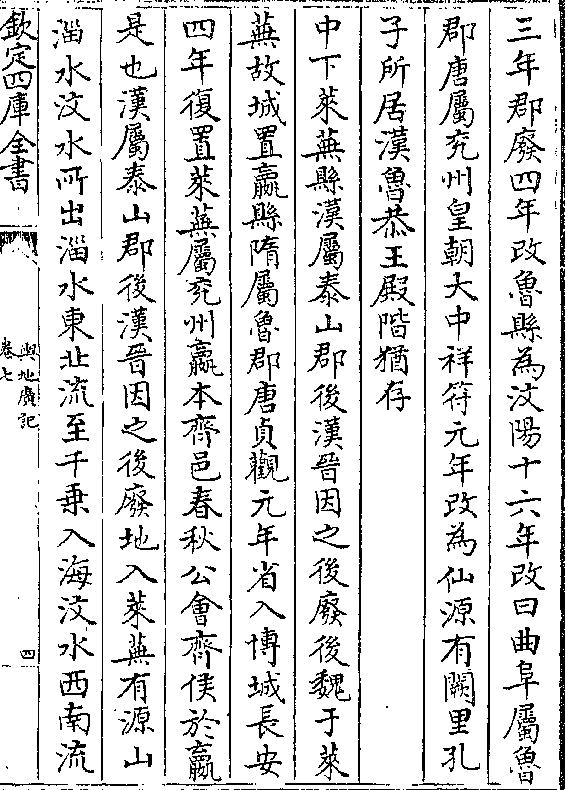 三年郡廢四年改魯縣為汶陽十六年改曰曲阜屬魯
郡唐屬兖州皇朝大中祥符元年改為仙源有闕里孔
子所居漢魯恭王殿階猶存
中下萊蕪縣漢屬泰山郡後漢晉因之後廢後魏于萊
蕪故城置嬴縣隋屬魯郡唐貞觀元年省入博城長安
四年復置萊蕪屬兖州嬴本齊邑春秋公會齊侯於嬴
是也漢屬泰山郡後漢晉因之後廢地入萊蕪有源山
淄水汶水所出淄水東北流至千乗入海汶水西南流
欽定四庫全書
輿地廣記
卷七
四